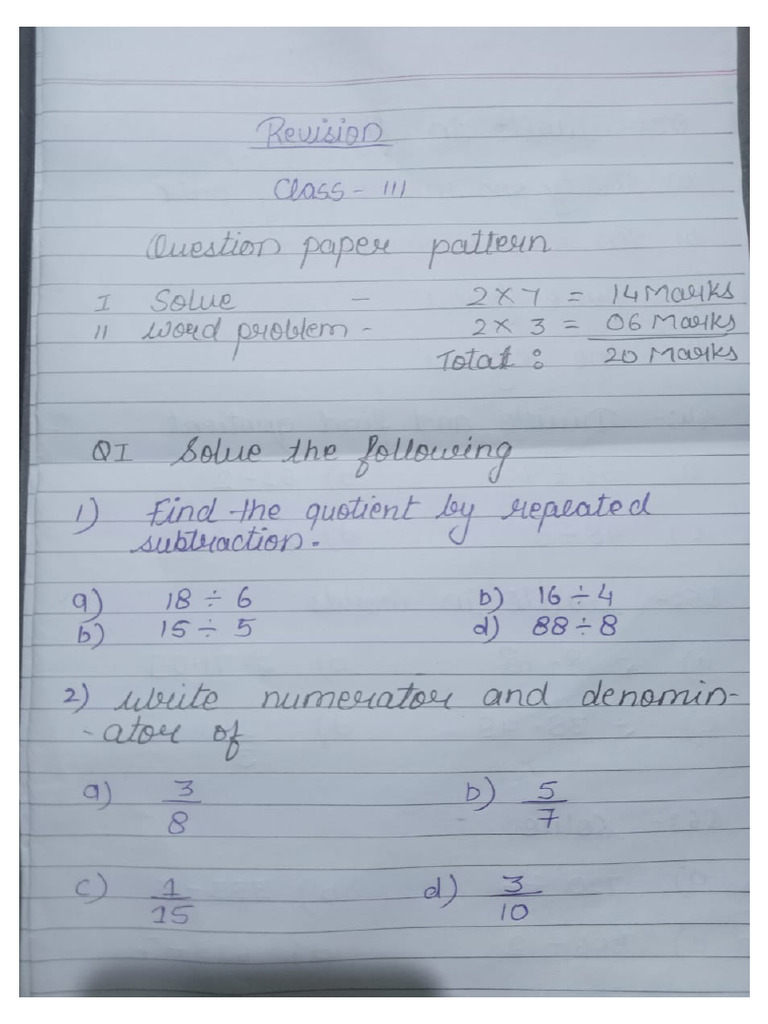 Revision
Class - III
Question paper pattern
I Solve - 2 × 7 = 14 Marks
II word problem - 2 × 3 = 06 Marks
Total : 20 Marks
QI Solve the following
1) Find the quotient by repeated
subtraction.
a) 18 ÷ 6 b) 16 ÷ 4
b) 15 ÷ 5 d) 88 ÷ 8
2) write numerator and denomin-
-ator of
a) 3/8 b) 5/7
c) 1/15 d) 3/10